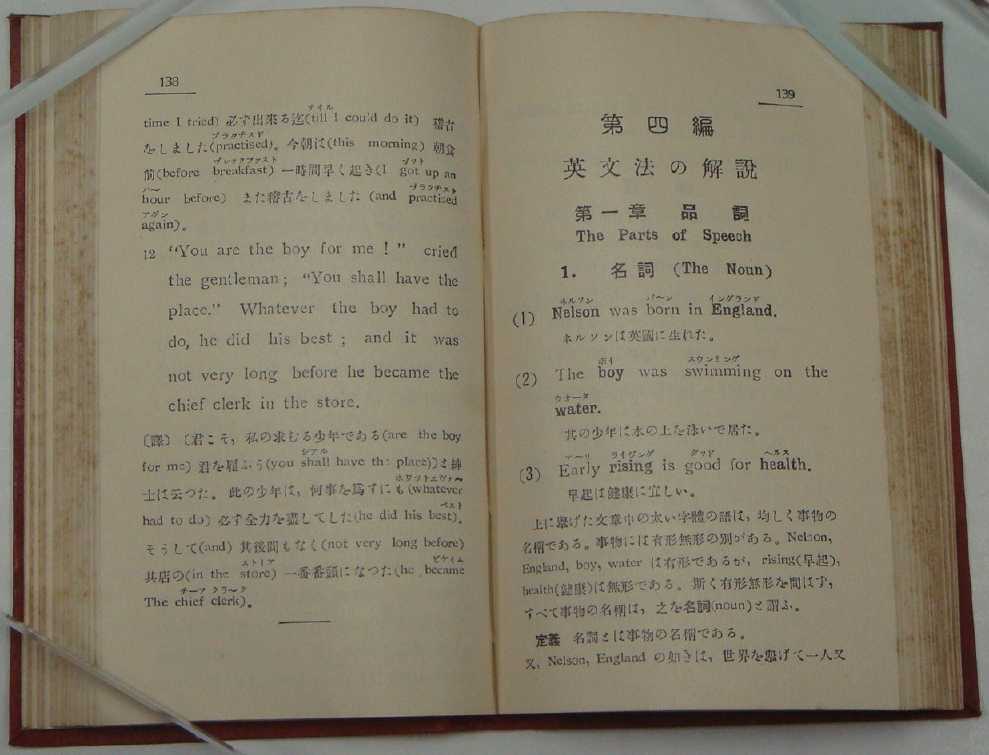 138
タイル
time I tried) 必ず出來る迄(till I could do it) 稽古
プラクチスド
をしました(practised)。今朝は(this morning) 朝食
ブレックファスト ゴット
前(before breakfast) 一時間早く起き(I got up an
ハ〜 プラクチスト
hour before) また稽古をしました (and practised
アゲン
again)。
12 “You are the boy for me ! ” cried
the gentleman ; “You shall have the
place.” Whatever the boy had to
do, he did his best ; and it was
not very long before he became the
chief clerk in the store.
〔譯〕〔君こそ, 私の求むる少年である(are the boy
シアル
for me) 君を雇ふう(you shall have the place)〕と紳
ホワットエヴァ〜
士は云つた。此の少年は, 何事を爲すにも(whatever
ベスト
had to do) 必ず全力を盡してした(he did his best)。
そうして(and) 其後間もなく(not very long before)
ストーア ビケイム
其店の(in the store) 一番番頭になつた(he became
チーフ クラーク
The chief clerk)。
139
第四編
英文法の解說
第一章 品詞
The Parts of Speech
1. 名詞 (The Noun)
ネルソン バ〜ン イングランド
(1) Nelson was born in England.
ネルソンは英國に生れた。
ボイ スウンミング
(2) The boy was swimming on the
ウオータ
water.
其の少年は水の上を泳いで居た。
ア〜リ ライジング グッド ヘルス
(3) Early rising is good for health.
早起は健康に宜しい。
上に擧げた文章中の太い字體の語は, 均しく事物の
名稱である。事物には有形無形の別がある。Nelson,
England, boy, water は有形であるが, rising(早起),
health(健康)は無形である。斯く有形無形を問はず,
すべて事物の名稱は, 之を名詞(noun)と謂ふ。
定義 名詞とは事物の名稱である。
又, Nelson, England の如きは, 世界を擧げて一人又